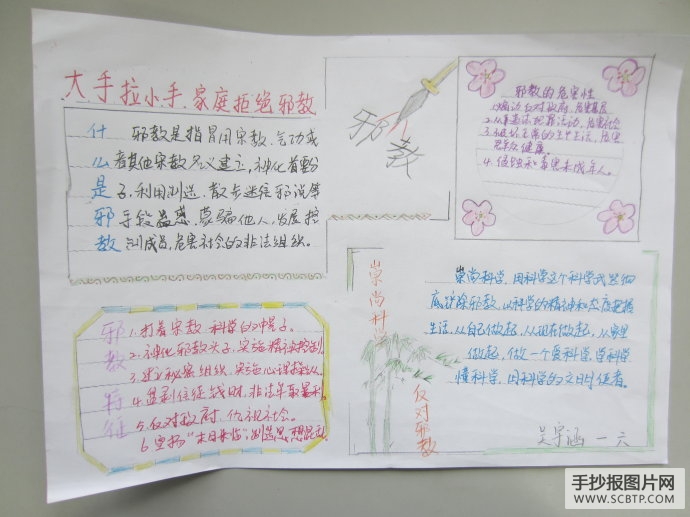 大手拉小手 家庭拒绝邪教
什么是邪教
邪教是指冒用宗教、气功或
者其他宗教名义建立,神化首要分
子,利用制造、散步迷信邪说等
手段蛊惑、蒙骗他人,发展控
制成员,危害社会的非法组织。
邪教
邪教的危害性
1.煽动反对政府,危害基层
2.从事违法犯罪活动,危害社会
3.破坏正常的生产生活,危害
群众健康。
4.侵蚀和毒害未成年人。
邪教特征
1.打着宗教 科学的幌子。
2.神化邪教头子,实施精神控制。
3.建立秘密组织,实施心理操纵。
4.骗取信徒钱财,非法牟取暴利。
5.反对政府,仇视社会。
6.宣扬“末日来临”,制造思想混乱
崇尚科学
反对邪教
崇尚科学,用科学这个科学武器彻
底铲除邪教,以科学的精神和态度把握
生活,从自己做起,从现在做起,从家里
做起,做一个爱科学,学科学
懂科学,用科学的文明使者。
一六
手抄报图片网
WWW.SCBTP.COM